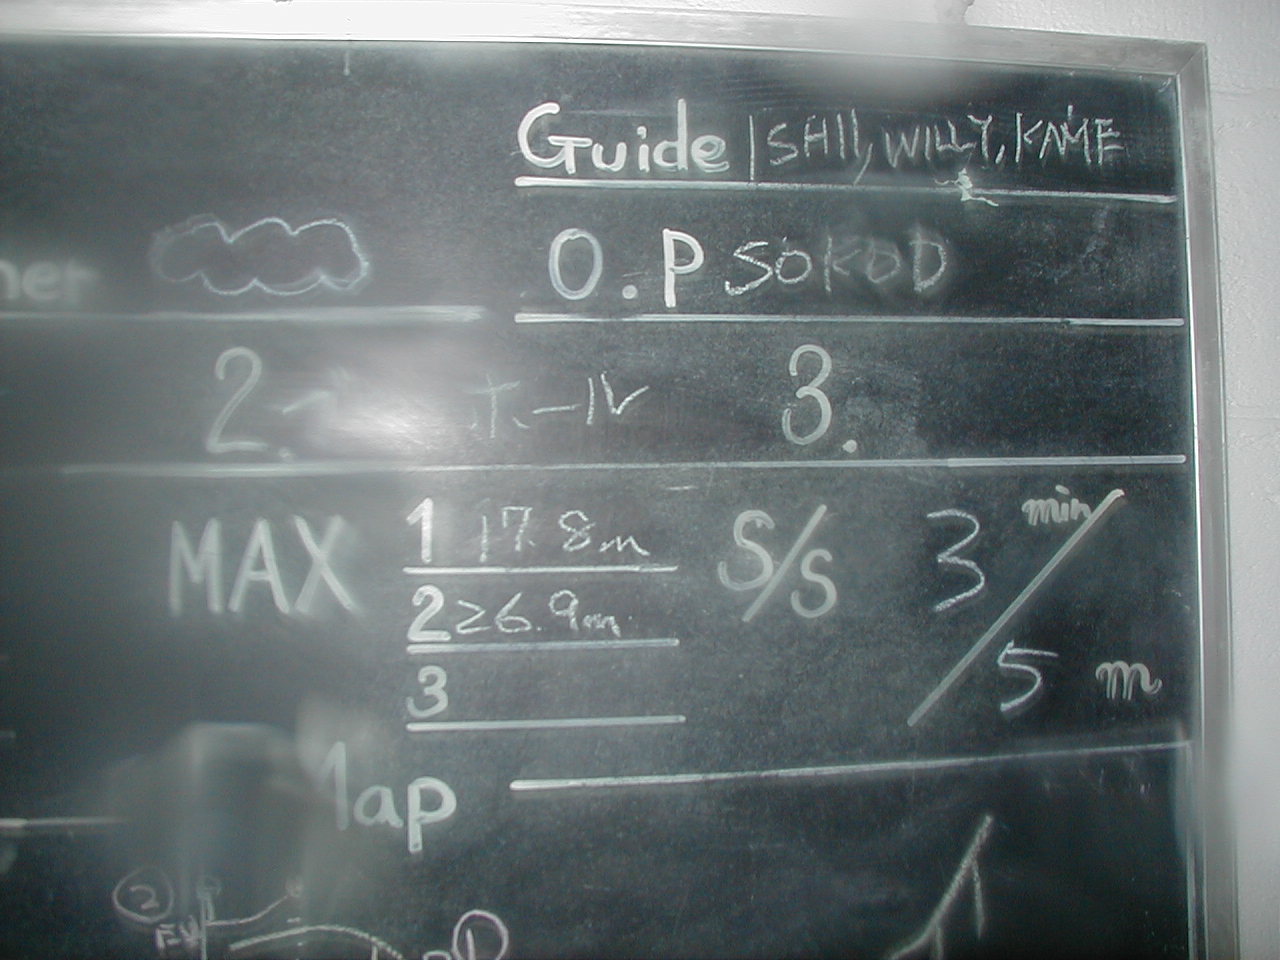 Guide ISHII, WILLY, KAME
O.P SOKOD
2. ホール 3.
MAX 1 17.8m S/S 3 min / 5 m
2 26.9m
3
Map
②
①